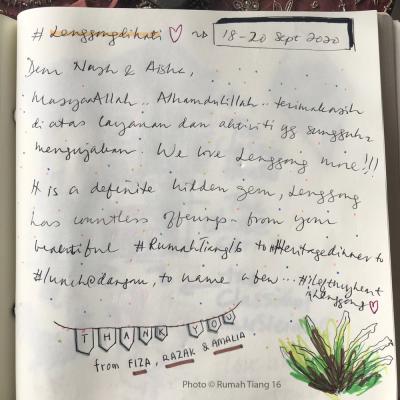 # Lenggongdihati ♡ ~> 18-20 Sept 2020
Dear Nash & Aisha,
MasyaAllah.. Alhamdulillah.. terimakasih
di atas layanan dan aktiviti yg sungguh2
mengujakan. We love Lenggong more!!!
It is a definite hidden gem, Lenggong
has countless offerings - from your
beautiful #RumahTiang16 to #Heritagedinner to
#lunch@dangau, to name a few... #ileftmyheart
inlenggong ♡
THANK YOU
from FIZA, RAZAK & AMALIA
Photo © Rumah Tiang 16